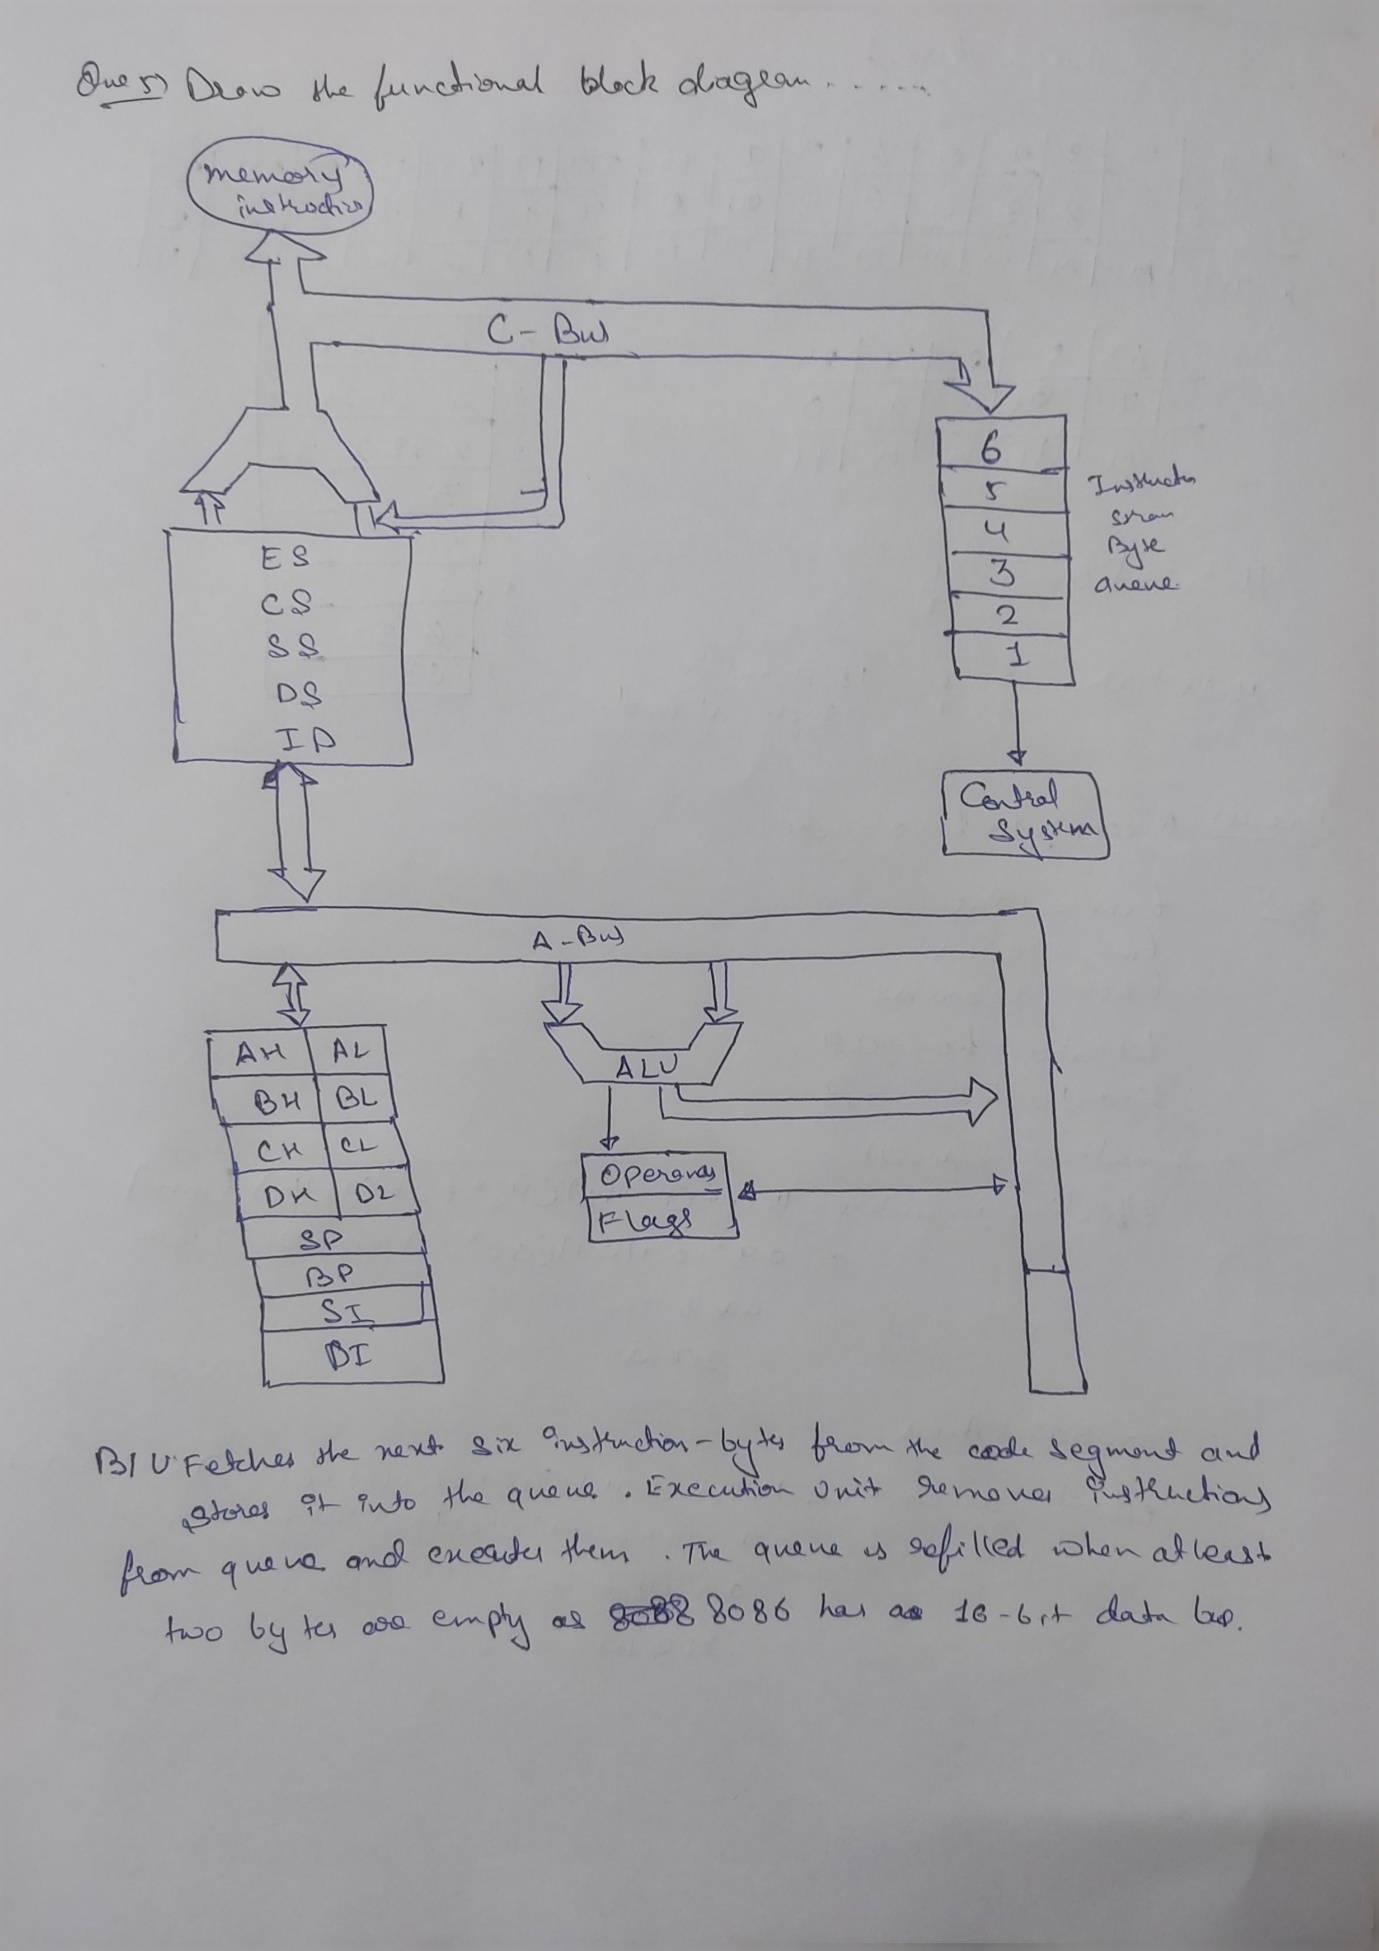 Que 5) Draw the functional block diagram......
memory
instruction
C - Bus
6
5
4
3
2
1
Byte
Queue
ES
CS
SS
DS
IP
Control
System
A - Bus
AH AL
BH BL
CH CL
DH DL
SP
BP
SI
DI
ALU
Operands
Flags
BIU Fetches the next six instruction-bytes from the code segment and
stores it into the queue. Execution unit removes instructions
from queue and executes them. The queue is refilled when atleast
two bytes are empty as 8086 has a 16-bit data bus.